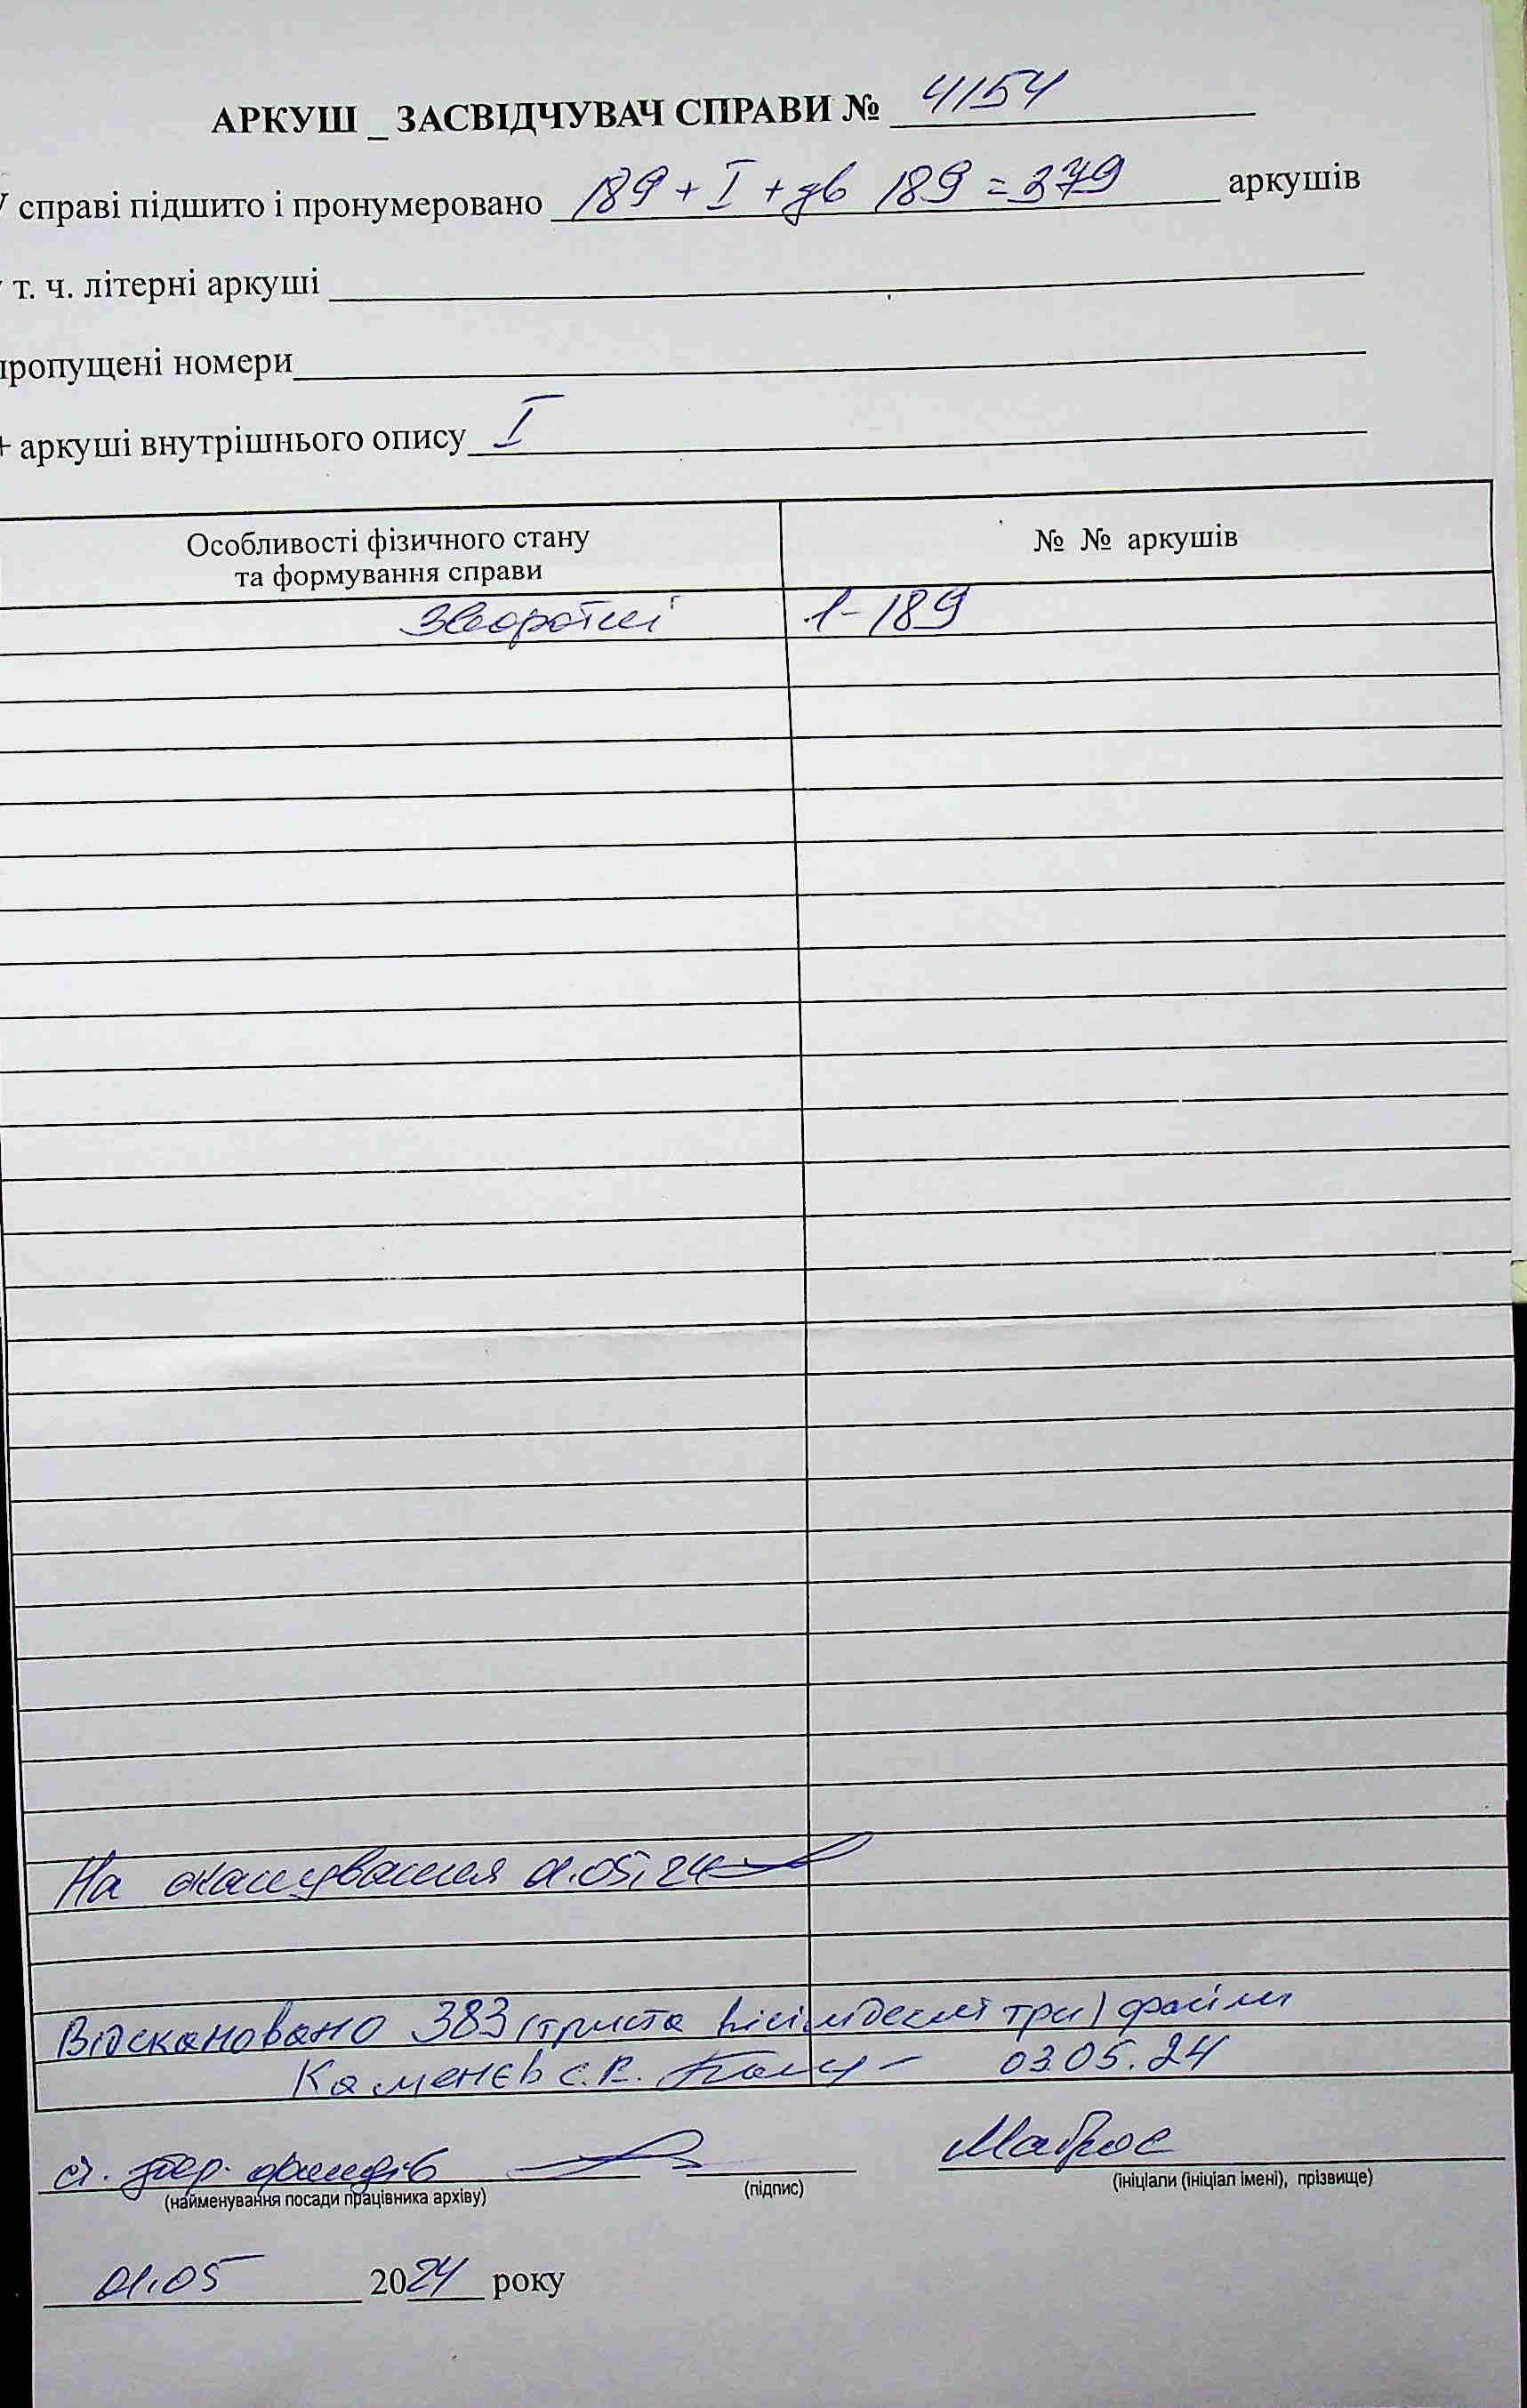 АРКУШ _ ЗАСВІДЧУВАЧ СПРАВИ № 4154
У справі підшито і пронумеровано 189 + I + зв 189 = 379 аркушів
т. ч. літерні аркуші
пропущені номери
+ аркуші внутрішнього опису I
Особливості фізичного стану та формування справи
№ № аркушів
Зворотні 1-189
На сканування 01.05.24
Відскановано 383 (триста вісімдесят три) файли
Каменєв С.В. 03.05.24
ст. збер. фондів
(найменування посади працівника архіву) (підпис) (ініціали (ініціал імені), прізвище)
01.05 2024 року